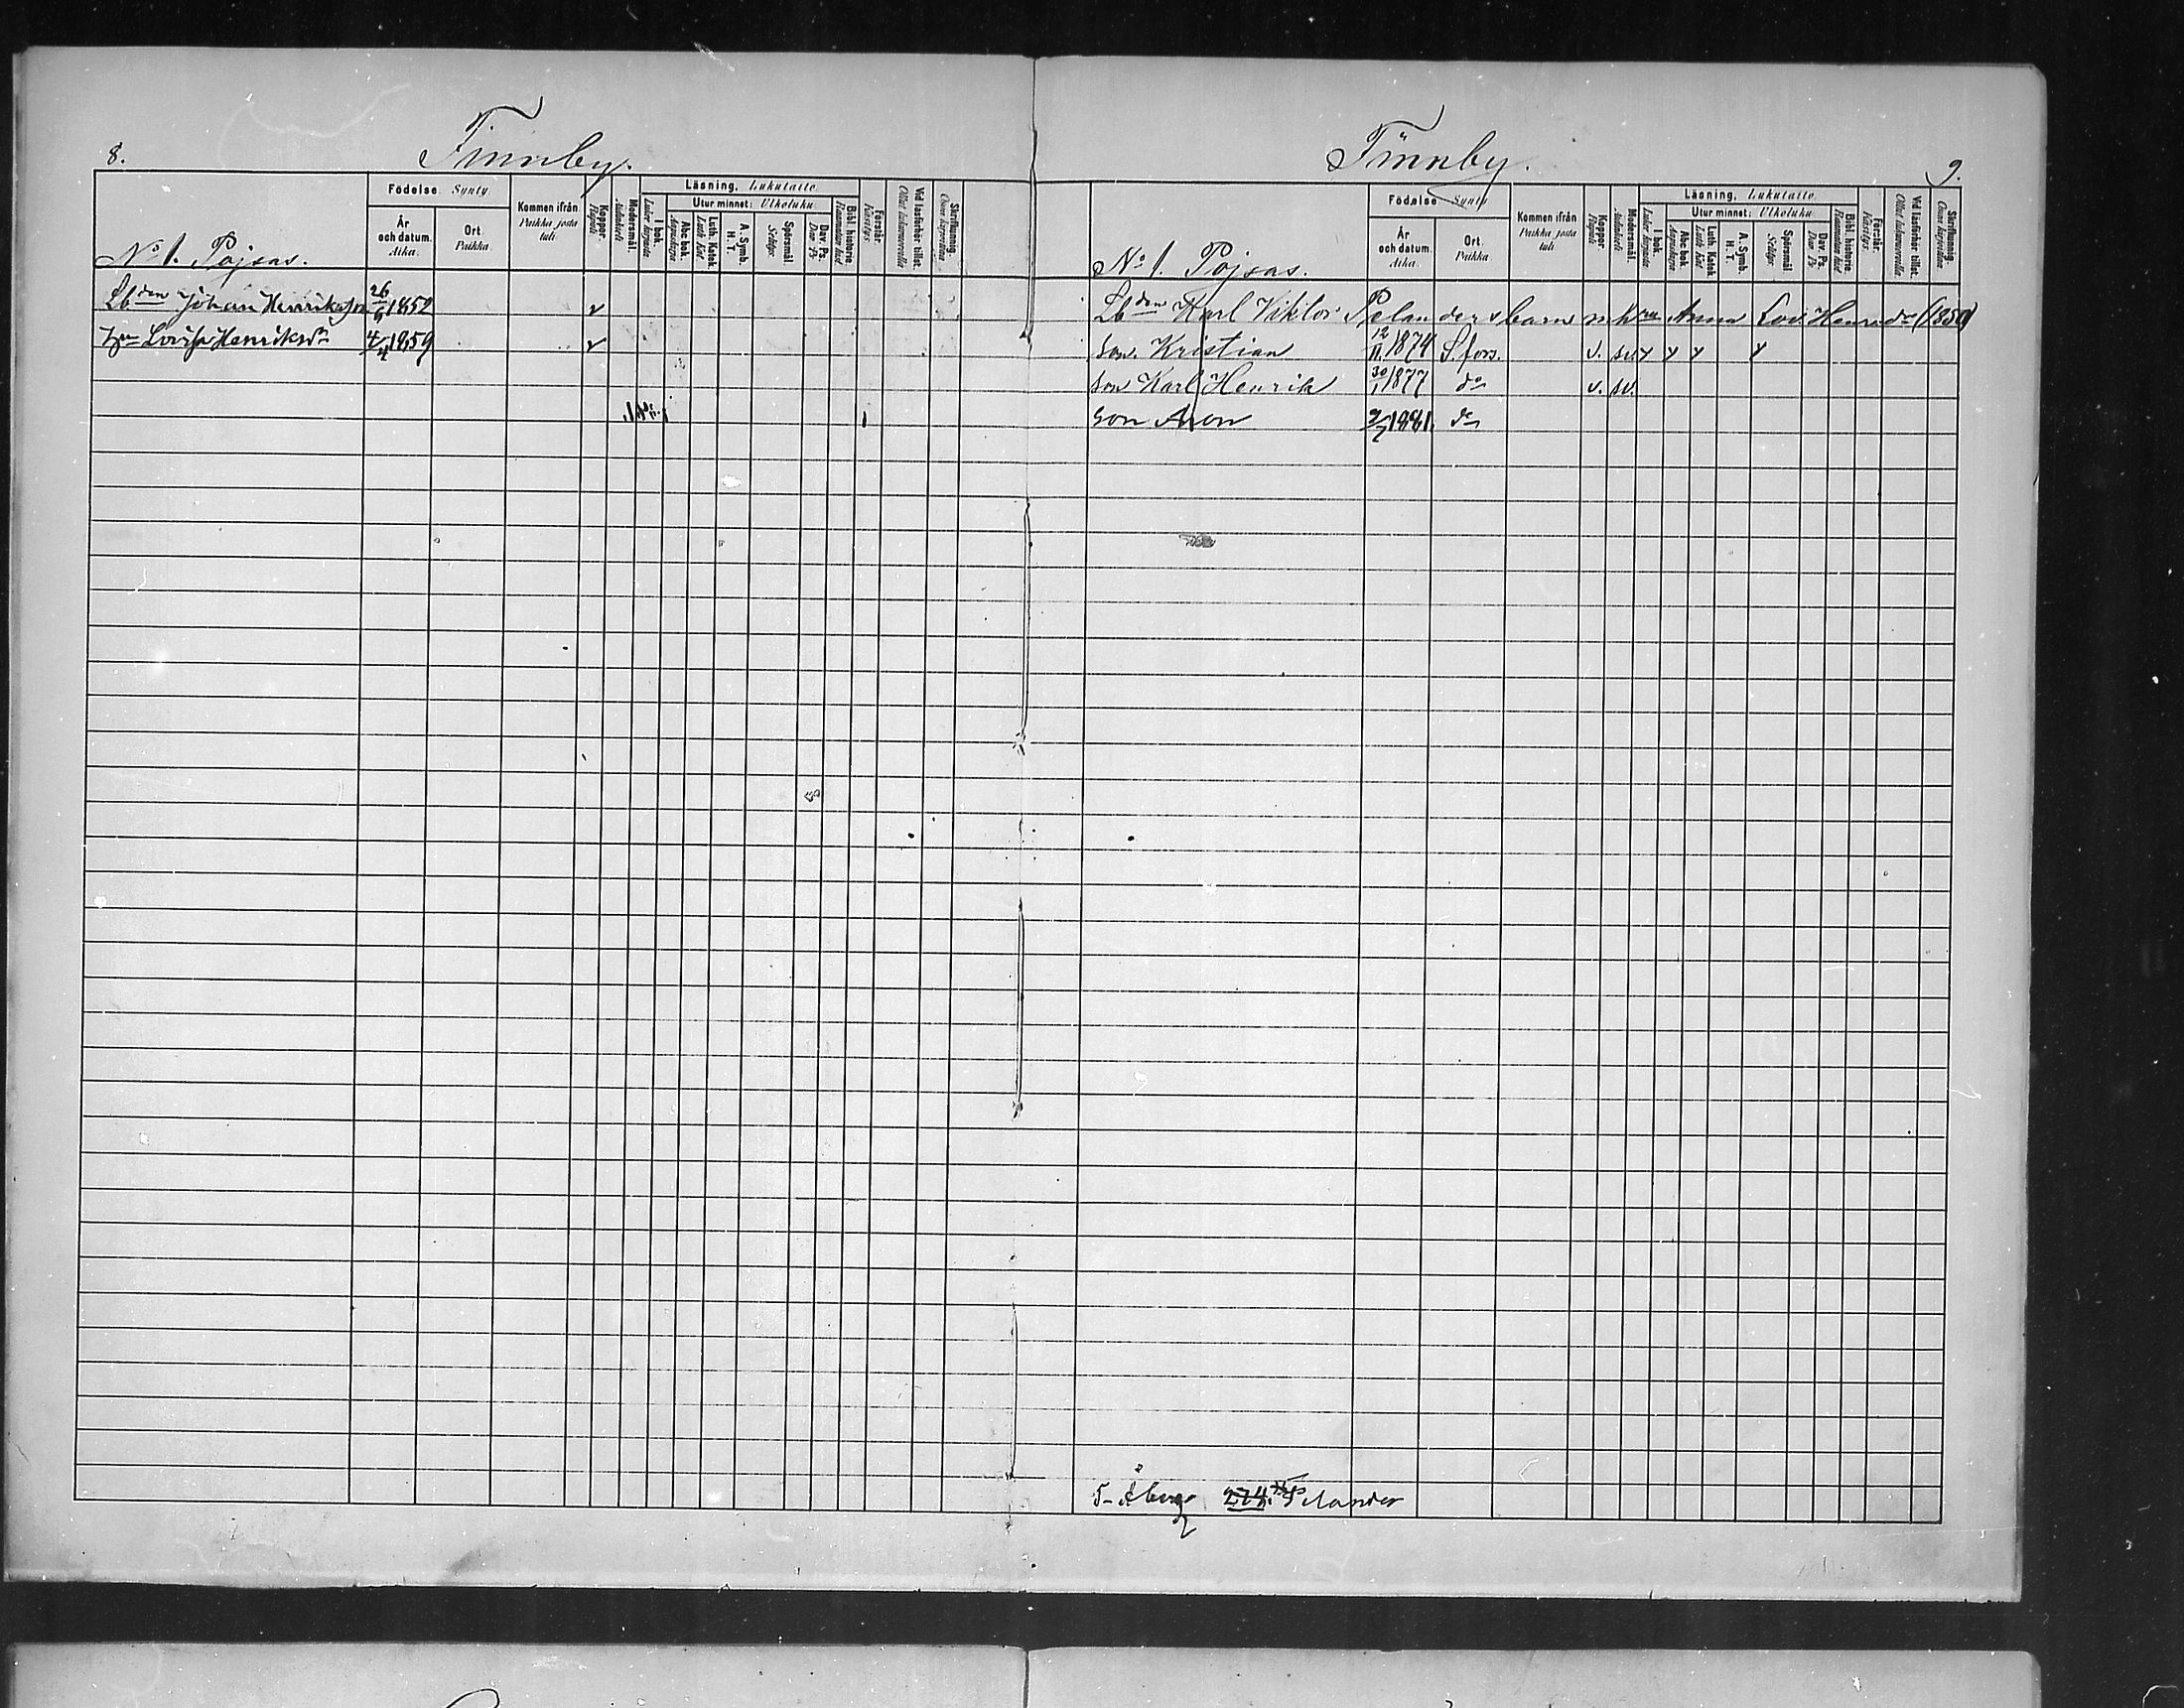 8.
Finnby.
Födelse. Synty.
Kommen ifrån. Paikka josta tuli.
Koppor. Rupuli
Modersmål. Äidinkieli
Läsning. Lukutaito.
I bok. Lukee kirjasta
Utur minnet: Ulkoluku.
Abc bok. Aapiskirja
Luth. Katek. Luth. Kat.
A. Symb. H. T.
Spörsmål. Selitys.
Dav. Ps. Dav. Ps
Bibl. historie.
Förstår. Käsitys.
Vid läsförhör tillst. Ollut lukumuserolla
Skrifkunnig. Osaa kirjoittaa
År och datum. Aika.
Ort. Paikka.
No 1. Pojsas.
Lbden Johan Henriksson 26/9 1852 v
hn Lovisa Henriksdr 4/4 1859 v
Finnby.
9.
Födelse Synty
Kommen ifrån Paikka josta tuli
Koppor. Rupuli
Modersmål. Äidinkieli
Läsning. Lukutaito.
I bok. Lukee kirjasta
Utur minnet: Ulkoluku.
Abc bok. Aapiskirja
Luth. Katek. Luth. Kat
A. Symb. H. T.
Spörsmål Selitys.
Dav. Ps. Dav. Ps
Bibl. historie
Förstår. Käsitys.
Vid läsförhör tillst. Ollut lukumuserolla
Skrifkunnig. Osaa kirjoittaa
År och datum. Aika.
Ort. Paikka
No 1. Pojsas.
Lbden Karl Viktor Pelanders barn m hru Anna Lov. Henrsdr (1850)
son. Kristian 12/11 1874 S.fors. v. sv y y y y
son Karl Henrik 30/1 1877 do v. sv.
son Aron 2/7 1881. do
5- Åberg 274. Pelander
2